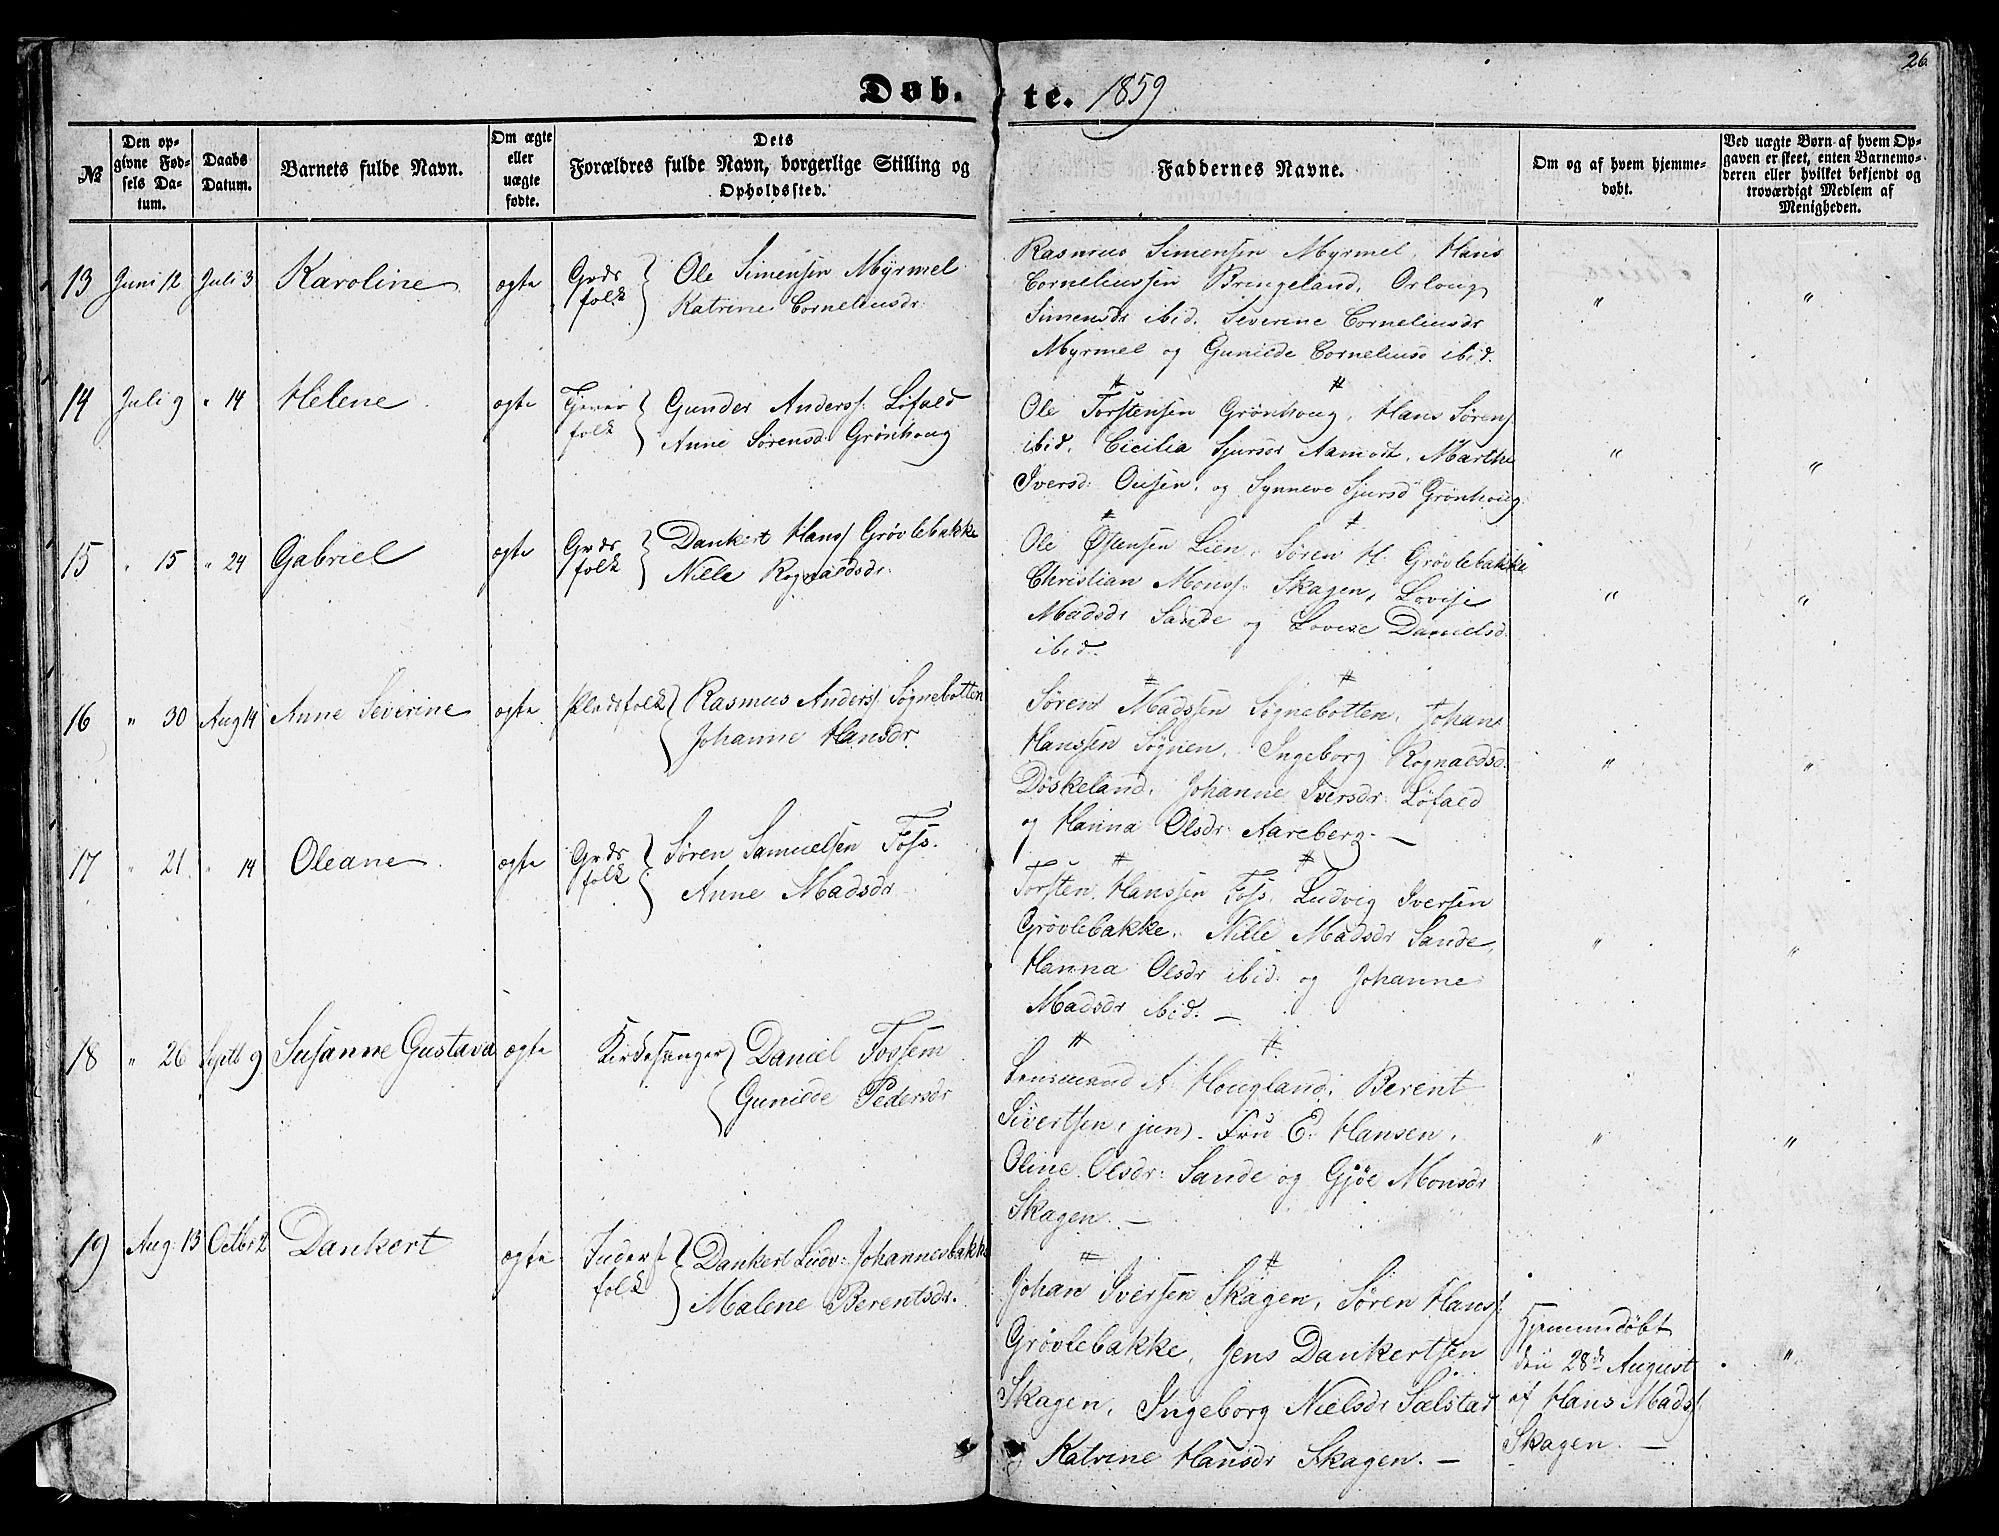 26
Døb- te. 1859
№
Den opgivne Fødsels Datum.
Daabs Datum.
Barnets fulde Navn.
Om ægte eller uægte fødte.
Dets Forældres fulde Navn, borgerlige Stilling og Opholdssted.
Faddernes Navne.
Om og af hvem hjemmedøbt.
Ved uægte Børn af hvem Opgaven er skeet, enten Barnemoderen eller hvilket bekjendt og troværdigt Medlem af Menigheden.
13 Juni 12 Juli 3 Karoline ægte Grds folk Ole Simensen Myrmel
Katrine Corneliusdr.
Rasmus Simensen Myrmel, Hans
Corneliussen Bringeland, Orloug
Simensdr ibid. Severine Corneliusdr
Myrmel og Gunilde Corneliusd ibid.
" "
14 Juli 9 " 14 Helene ægte Tjener folk Gunder Anderss: Løfald
Anne Sørensd: Grønhoug
Ole Torstensen Grønhoug, Hans Sørens
ibid, Cicilia Sjursdr Aamodt, Marthe
Iversd: Ousen, og Synneve Sjursd Grønhoug
" "
15 " 15 " 24 Gabriel ægte Grds folk Dankert Hanss Grøvlebakke
Nille Rognaldsdr.
Ole Østensen Lien, Søren H: Grøvlebakke
Christian Monss: Skagen, Lovise
Madsdr Sande og Lovise Danielsd
ibid.
" "
16 " 30 Aug 14 Anne Severine ægte Pladsfolk Rasmus Anderss Søgnebotten
Johanne Hansdr.
Søren Madssen Søgnebotten, Johan
Hanssen Søgnen, Ingeborg Rognaldsd.
Døskeland, Johanne Iversdr: Løfald
og Hanna Olsdr: Aareberg. —
" "
17 " 21 " 14 Oleane ægte Grds folk Søren Samuelsen Foss.
Anne Madsdr
Torsten Hanssen Foss, Ludvig Iversen
Grøvlebakke, Nille Madsdr Sande,
Hanna Olsdr ibid: og Johanne
Madsdr ibid. —
" "
18 " 26 Septb 9 Susanne Gustava ægte Kirkesanger Daniel Fossem
Gunilde Pedersdr
Lensmand A. Hougland, Berent
Sivertsen, jun). Fru E. Hansen,
Oline Olsdr: Sande og Gjøe Monsdr
Skagen. —
" "
19 Aug. 13 Octbr 2 Dankert ægte Inderst folk Dankert Ludv: Johannesbakke
Malene Berentsdr.
Johan Iversen Skagen, Søren Hanss.
Grøvlebakke, Jens Dankertsen
Skagen, Ingeborg Nielsdr Sælstad
Katrine Hansdr Skagen. —
Hjemmedøbt
den 28de August
af Hans Madss
Skagen. —
"